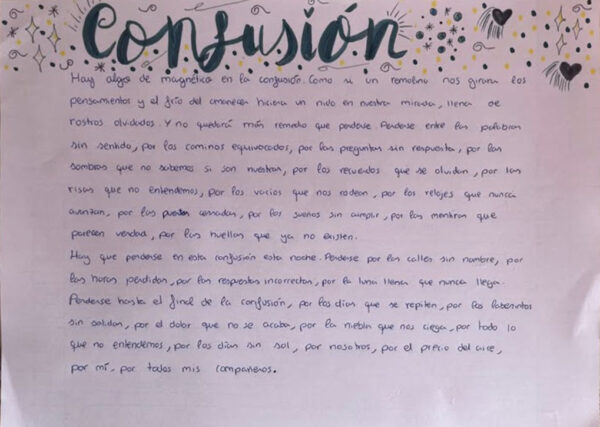 Confusión
Hay algo de magnético en la confusión. Como si un remolino nos girara los
pensamientos y el frío del amanecer hiciera un nido en nuestra mirada, llena de
rostros olvidados. Y no quedará más remedio que perderse. Perderse entre las palabras
sin sentido, por los caminos equivocados, por las preguntas sin respuesta, por las
sombras que no sabemos si son nuestras, por los recuerdos que se olvidan, por las
risas que no entendemos, por los vacíos que nos rodean, por los relojes que nunca
avanzan, por las puertas cerradas, por los sueños sin cumplir, por las mentiras que
parecen verdad, por las huellas que ya no existen.
Hay que perderse en esta confusión esta noche. Perderse por las calles sin nombre, por
las horas perdidas, por las respuestas incorrectas, por la luna llena que nunca llega.
Perderse hasta el final de la confusión, por los días que se repiten, por los laberintos
sin salidas, por el dolor que no se acaba, por la niebla que nos ciega, por todo lo
que no entendemos, por los días sin sol, por nosotros, por el precio del aire,
por mí, por todos mis compañeros.